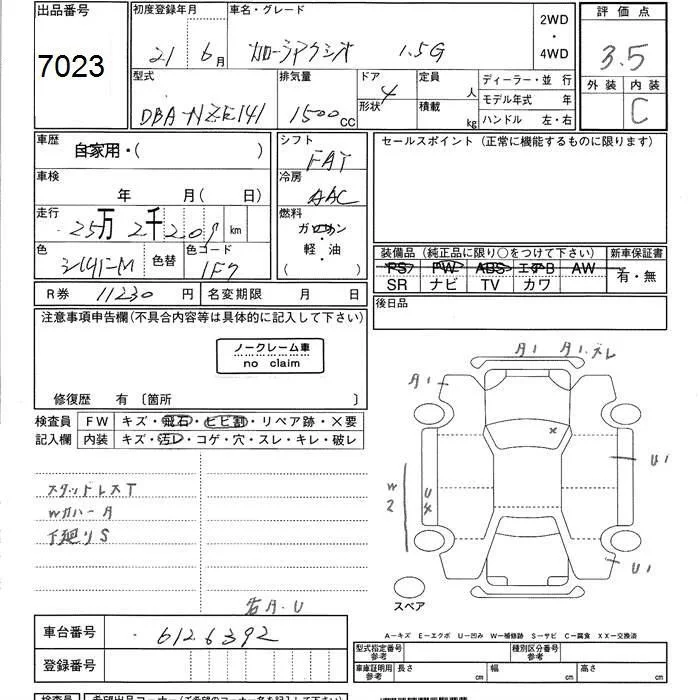 出品番号
7023
初度登録年月
21 6月
車名・グレード
カローラアクシオ 1.5G
2WD
・
4WD
評価点
3.5
外装 内装
C
型式
DBA-NZE141
排気量
1500cc
ドア
4
形状
定員
人
積載
kg
ディーラー・並 行
モデル年式 年
ハンドル 左・右
車歴
自家用・( )
シフト
FAT
セールスポイント (正常に機能するものに限ります)
車検
年 月( 日)
冷房
AAC
走行
25万 2千209 km
燃料
ガソリン
・
軽・油
( )
色
シルバーM
色替
色コード
1F7
装備品 (純正品に限り○をつけて下さい)
新車保証書
PS PW ABS エアB AW
有・無
SR ナビ TV カワ
R券 11230 円
名変期限 月 日
後日品
注意事項申告欄(不具合内容等は具体的に記入して下さい)
ノークレーム車
no claim
修復歴 有 〔箇所 〕
検査員
記入欄
FW キズ・飛石・ヒビ割・リペア跡・×要
内装 キズ・汚レ・コゲ・穴・スレ・キレ・破レ
スタッドレスT
Wカバー A
下廻りS
A1 A1.ズレ
A1
×
U1
W2
U4
U1
スペア
車台番号
6126392
登録番号
A－キズ E－エクボ U－凹み W－補修跡 S－サビ C－腐食 XX－交換済
型式指定番号
参考
種別区分番号
参考
車庫証明用
参考
長さ cm
幅 cm
高さ cm
検査員
希望出品コーナー(ご希望のコーナー名を記入して下さい)